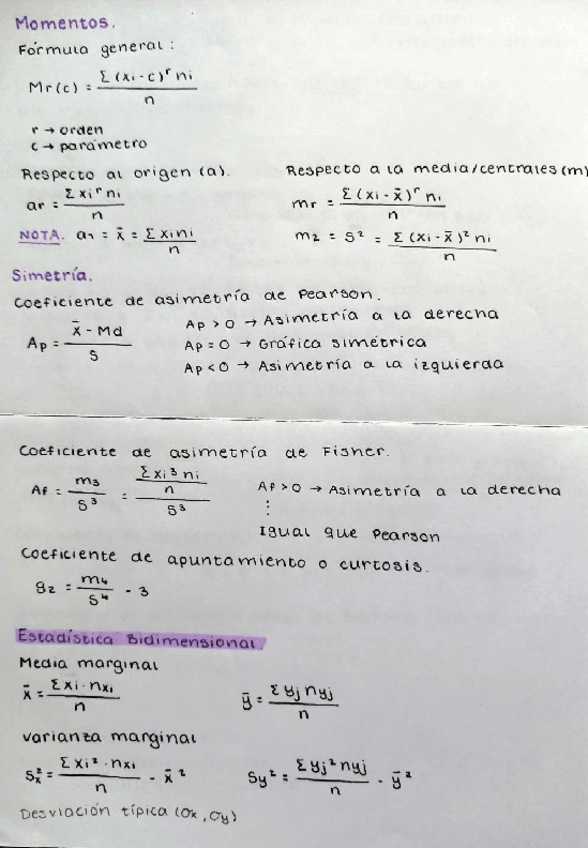 Momentos.
Fórmula general:
Mr(c) = Σ(xi-c)^r ni / n
r → orden
c → parámetro
Respecto al origen (a). Respecto a la media/centrales (m)
ar = Σxi^r ni / n mr = Σ(xi-x̄)^r ni / n
NOTA. a1 = x̄ = Σxini / n m2 = S² = Σ(xi-x̄)² ni / n
Simetría.
Coeficiente de asimetría de Pearson.
Ap = x̄ - Md / S
Ap > 0 → Asimetría a la derecha
Ap = 0 → Gráfica simétrica
Ap < 0 → Asimetría a la izquierda
Coeficiente de asimetría de Fisher.
Af = m3 / S³ = (Σxi³ ni / n) / S³
Af > 0 → Asimetría a la derecha
⋮
Igual que Pearson
Coeficiente de apuntamiento o curtosis.
g2 = m4 / S⁴ - 3
Estadística Bidimensional.
Media marginal
x̄ = Σxi · nxi / n ȳ = Σyj nyj / n
varianza marginal
Sx² = Σxi² · nxi / n - x̄² Sy² = Σyj² nyj / n - ȳ²
Desviación típica (σx, σy)